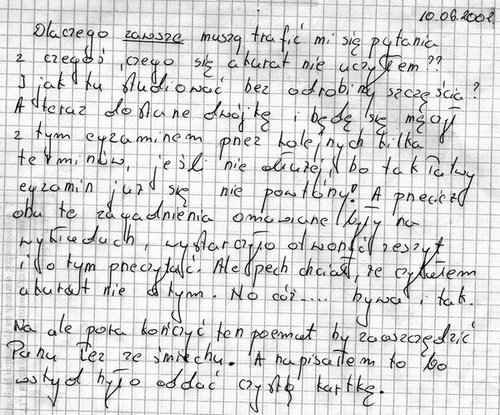 10.06.2008
Dlaczego zawsze muszą trafić mi się pytania
z czegoś, czego się akurat nie uczyłem??
I jak tu studiować bez odrobiny szczęścia?
A teraz dostane dwójkę i będę się męczył
z tym egzaminem przez kolejnych kilka
terminów, jeśli nie dłużej, bo tak łatwy
egzamin już się nie powtórzy. A przecież
oba te zagadnienia omawiane były na
wykładach, wystarczyło otworzyć zeszyt
i o tym przeczytać. Ale pech chciał, że czytałem
akurat nie o tym. No cóż.... bywa i tak.
Na ale pora kończyć ten poemat by zaoszczędzić
Panu łez ze śmiechu. A napisałem to bo
wstyd było oddać czystą kartkę.